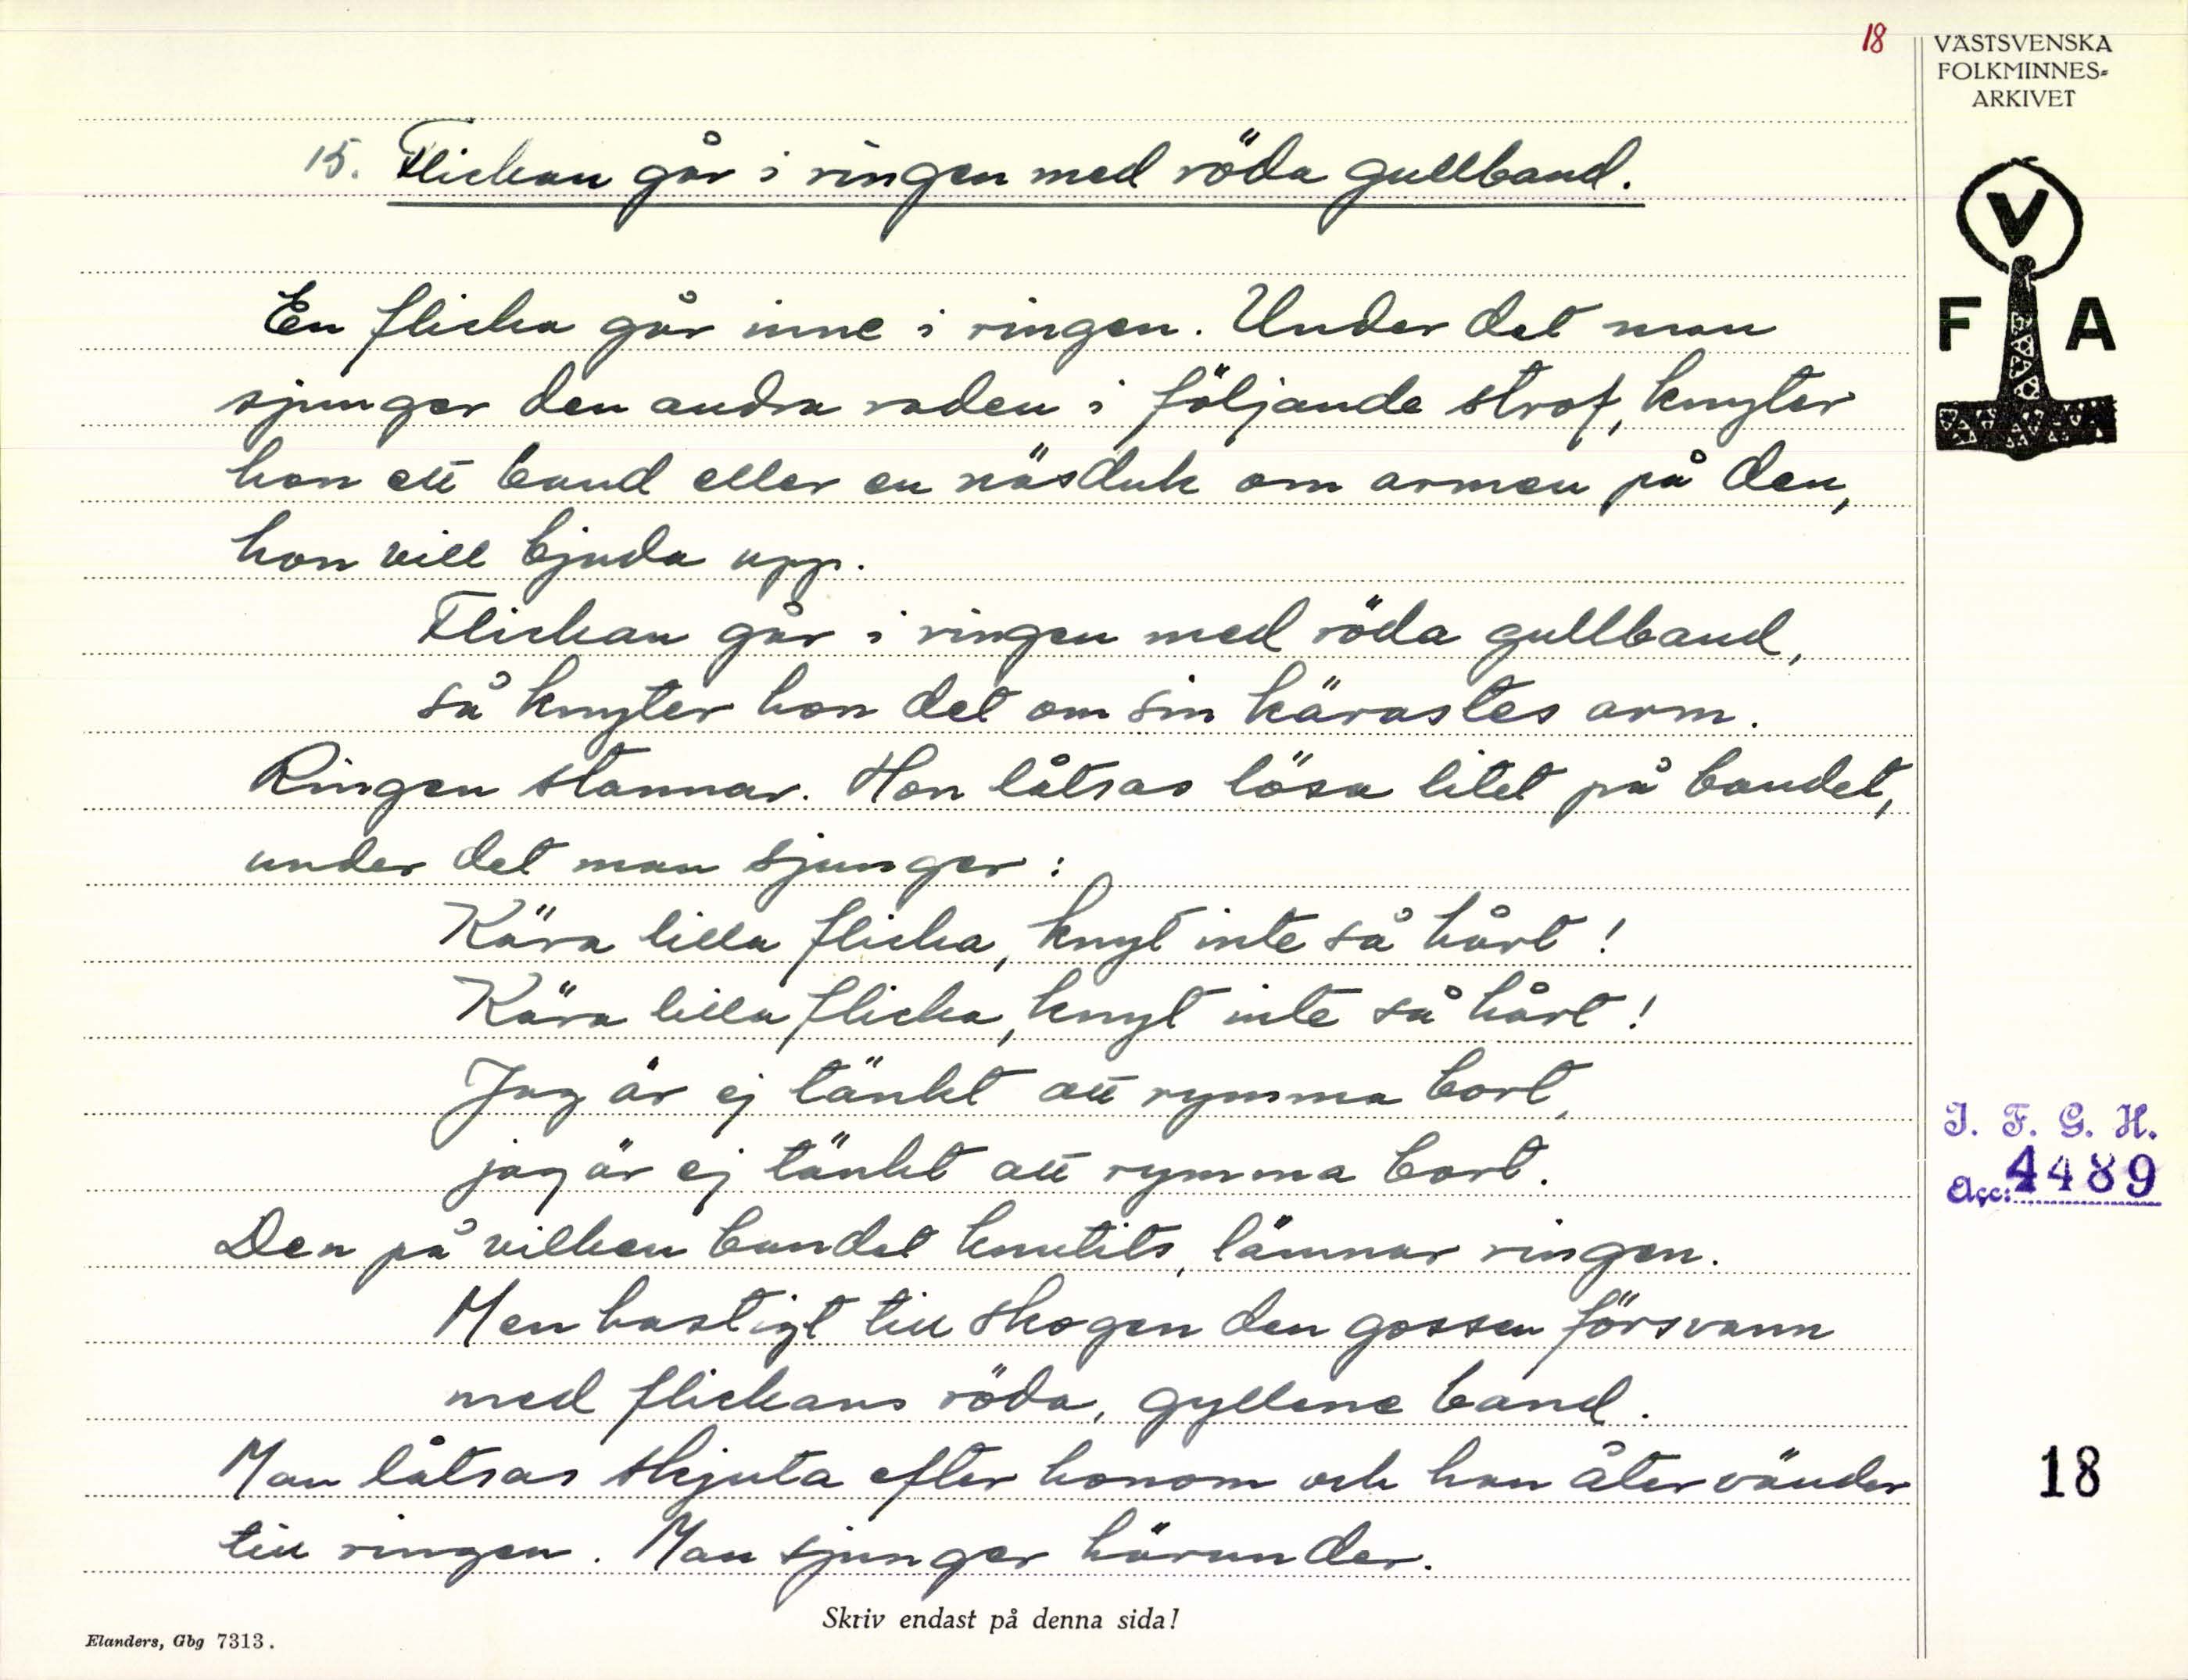 18
VÄSTSVENSKA
FOLKMINNES-
ARKIVET
V
F A
15. Flickan går i ringen med röda gullband.
En flicka går inne i ringen. Under det man
sjunger den andra raden i följande strof, knyter
hon ett band eller en näsduk om armen på den,
hon vill bjuda upp.
Flickan går i ringen med röda gullband,
så knyter hon det om sin kärastes arm.
Ringen stannar. Hon låtsas lösa litet på bandet,
under det man sjunger:
Kära lilla flicka, knyt inte så hårt!
Kära lilla flicka, knyt inte så hårt!
Jag är ej tänkt att rymma bort,
jag är ej tänkt att rymma bort.
Den på vilken bandet knutits, lämnar ringen.
Men hastigt till skogen den gossen försvann
med flickans röda, gyllene band.
Man låtsas skjuta efter honom och han återvänder
till ringen. Man sjunger härunder.
I. F. G. H.
Acc: 4489
18
Skriv endast på denna sida!
Elanders, Gbg 7313.